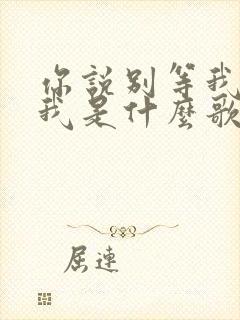 你說別等我
我是什麼歌
屈連